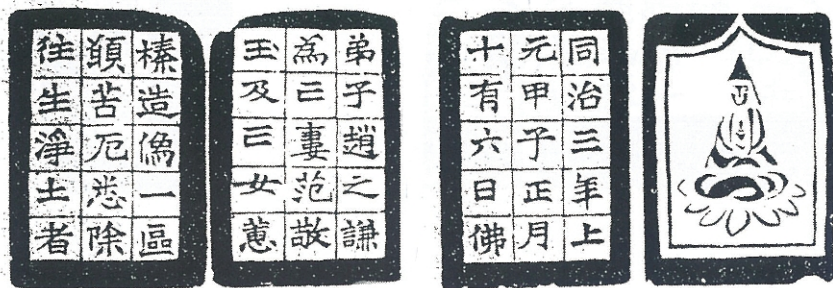 同治三年上
元甲子正月
十有六日佛
弟子趙之謙
為亡妻范敬
玉及亡女蕙
榛造像一區
願苦厄悉除
往生淨土者